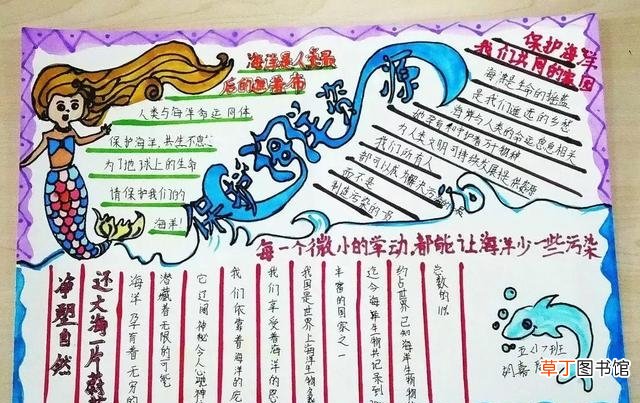 海洋是人类最
后的遮羞布
人类与海洋命运同体
保护海洋,共生不息!
为了地球上的生命
请保护我们的
海洋!
保护海洋资源
保护海洋
我们共同的家园
海洋是生命的摇篮
是我们遥远的乡愁
海洋与人类的命运息息相关
她孕育和守护着万千物种
为人类文明可持续发展提供
我们所有人
都可以成为解决污染
而不是
制造污染的
每一个微小的举动,都能让海洋少一些污染
还大海一片
净塑自然
海洋孕育着无穷的
潜藏着无限的可能
它辽阔神秘令人
我们依靠着海洋的
我们享受着海洋的恩
我国是世界上海洋生物
丰富的国家之一
迄今海洋生物共记录到
约占世界已知海洋生物
总数的11%
五(7)班
草丁图书馆